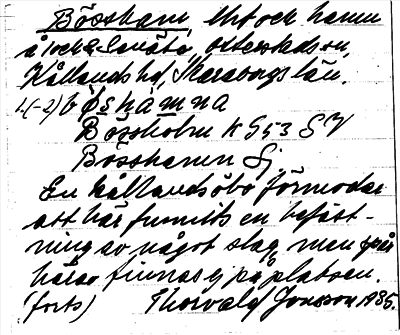 Bösshamn, Urt och hamn
å ock. Senäte, Otterstads sn,
Kållands hd, Skaraborgs län.
1(-2) bø̀shàmna
Bössholm K G53 SV
Bösshamn Sj.
En kållandsöbo förmodar
att här funnits en befäst-
ning av något slag, men
härav finnas ej på platsen.
(forts) Thorvald Jonsson 1935.